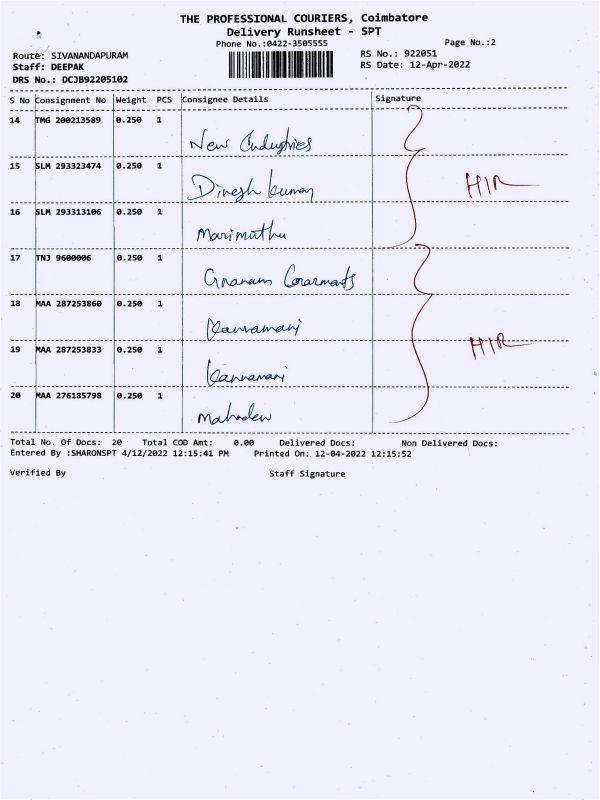 THE PROFESSIONAL COURIERS, Coimbatore
Delivery Runsheet - SPT
Phone No.:0422-3505555 Page No.:2
Route: SIVANANDAPURAM RS No.: 922051
Staff: DEEPAK RS Date: 12-Apr-2022
DRS No.: DCJB92205102
S No Consignment No Weight PCS Consignee Details Signature
14 TMG 200213589 0.250 1
New Industries
15 SLM 293323474 0.250 1
Dinesh kumar HIR
16 SLM 293313106 0.250 1
Marimuthu
17 TNJ 9600006 0.250 1
Gnanam Garments
18 MAA 287253860 0.250 1
Kannamani
19 MAA 287253833 0.250 1 HIR
Kannamani
20 MAA 276185798 0.250 1
Mahadev
Total No. Of Docs: 20 Total COD Amt: 0.00 Delivered Docs: Non Delivered Docs:
Entered By :SHARONSPT 4/12/2022 12:15:41 PM Printed On: 12-04-2022 12:15:52
Verified By Staff Signature